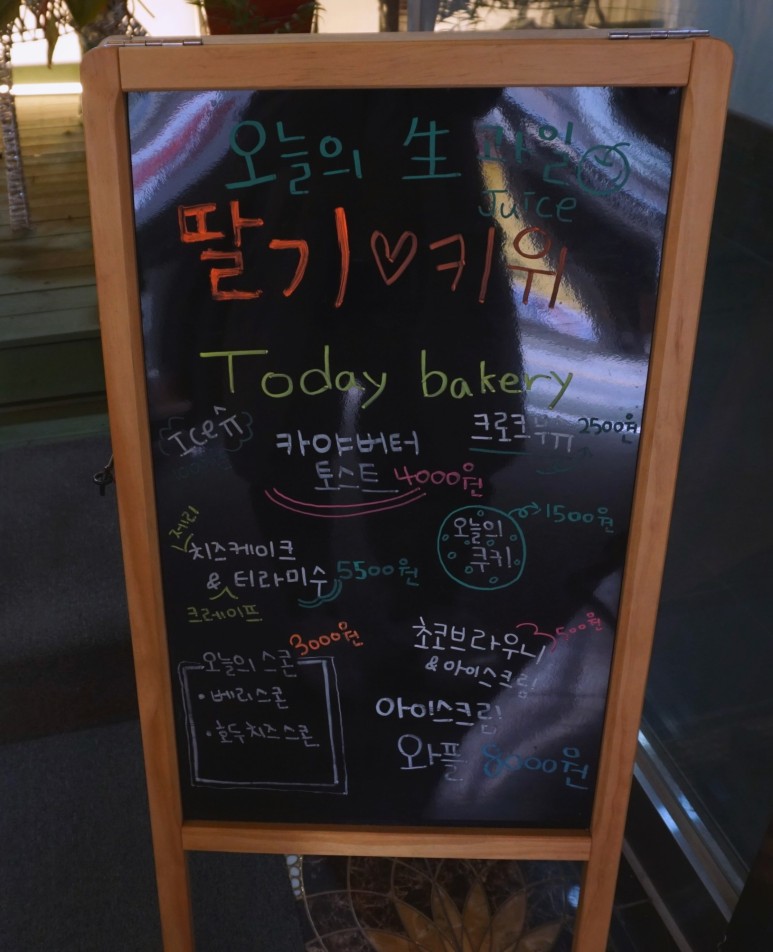 오늘의 生 과일
Juice
딸기♡키위
Today bakery
Ice
카야버터
토스트 4000원
크로크무슈 2500원
오늘의
쿠키
1500원
제리
치즈케이크
& 티라미수 5500원
크레이프
오늘의 스콘 3000원
• 베리스콘
• 호두치즈스콘
초코브라우니 3500원
& 아이스크림
아이스크림
와플 8000원